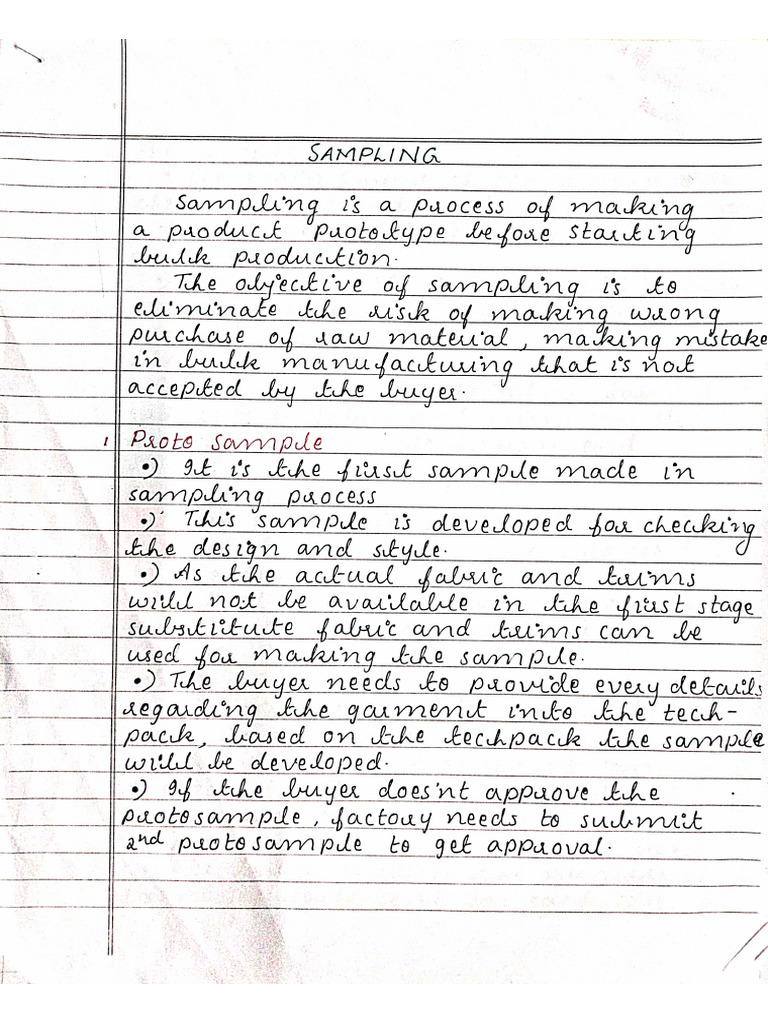 SAMPLING
Sampling is a process of making
a product prototype before starting
bulk production.
The objective of sampling is to
eliminate the risk of making wrong
purchase of raw material, making mistake
in bulk manufacturing that is not
accepted by the buyer.
1 Proto sample
•) It is the first sample made in
sampling process
•) This sample is developed for checking
the design and style.
•) As the actual fabric and trims
will not be available in the first stage
substitute fabric and trims can be
used for making the sample.
•) The buyer needs to provide every details
regarding the garment into the tech-
pack, based on the techpack the sample
will be developed.
•) If the buyer does'nt approve the
protosample, factory needs to submit
2nd protosample to get approval.